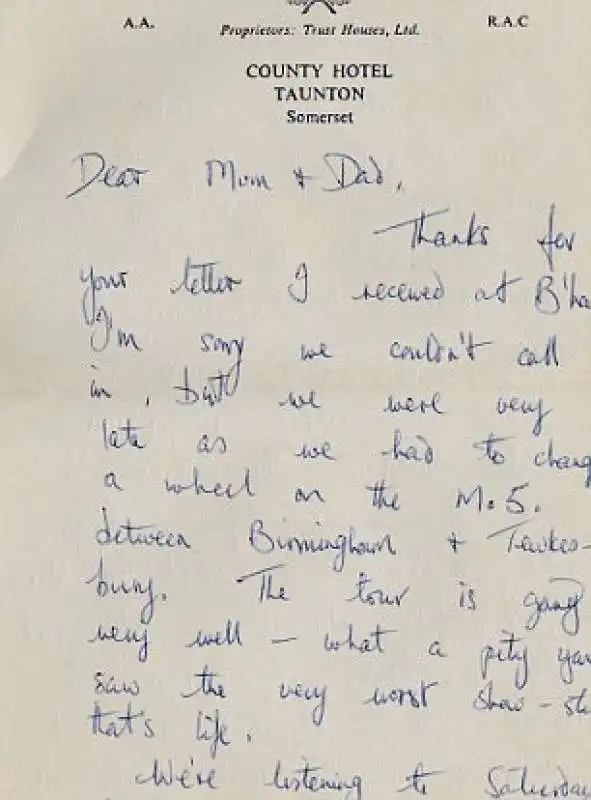 A.A.
R.A.C
Proprietors: Trust Houses, Ltd.
COUNTY HOTEL
TAUNTON
Somerset
Dear Mum + Dad,
Thanks for
your letter I received at B'ha
I'm sorry we couldn't call
in, but we were very
late as we had to chang
a wheel on the M.5.
between Birmingham + Tewkes-
bury. The tour is going
very well – what a pity you
saw the very worst show - sti
that's life.
We're listening to Saturday